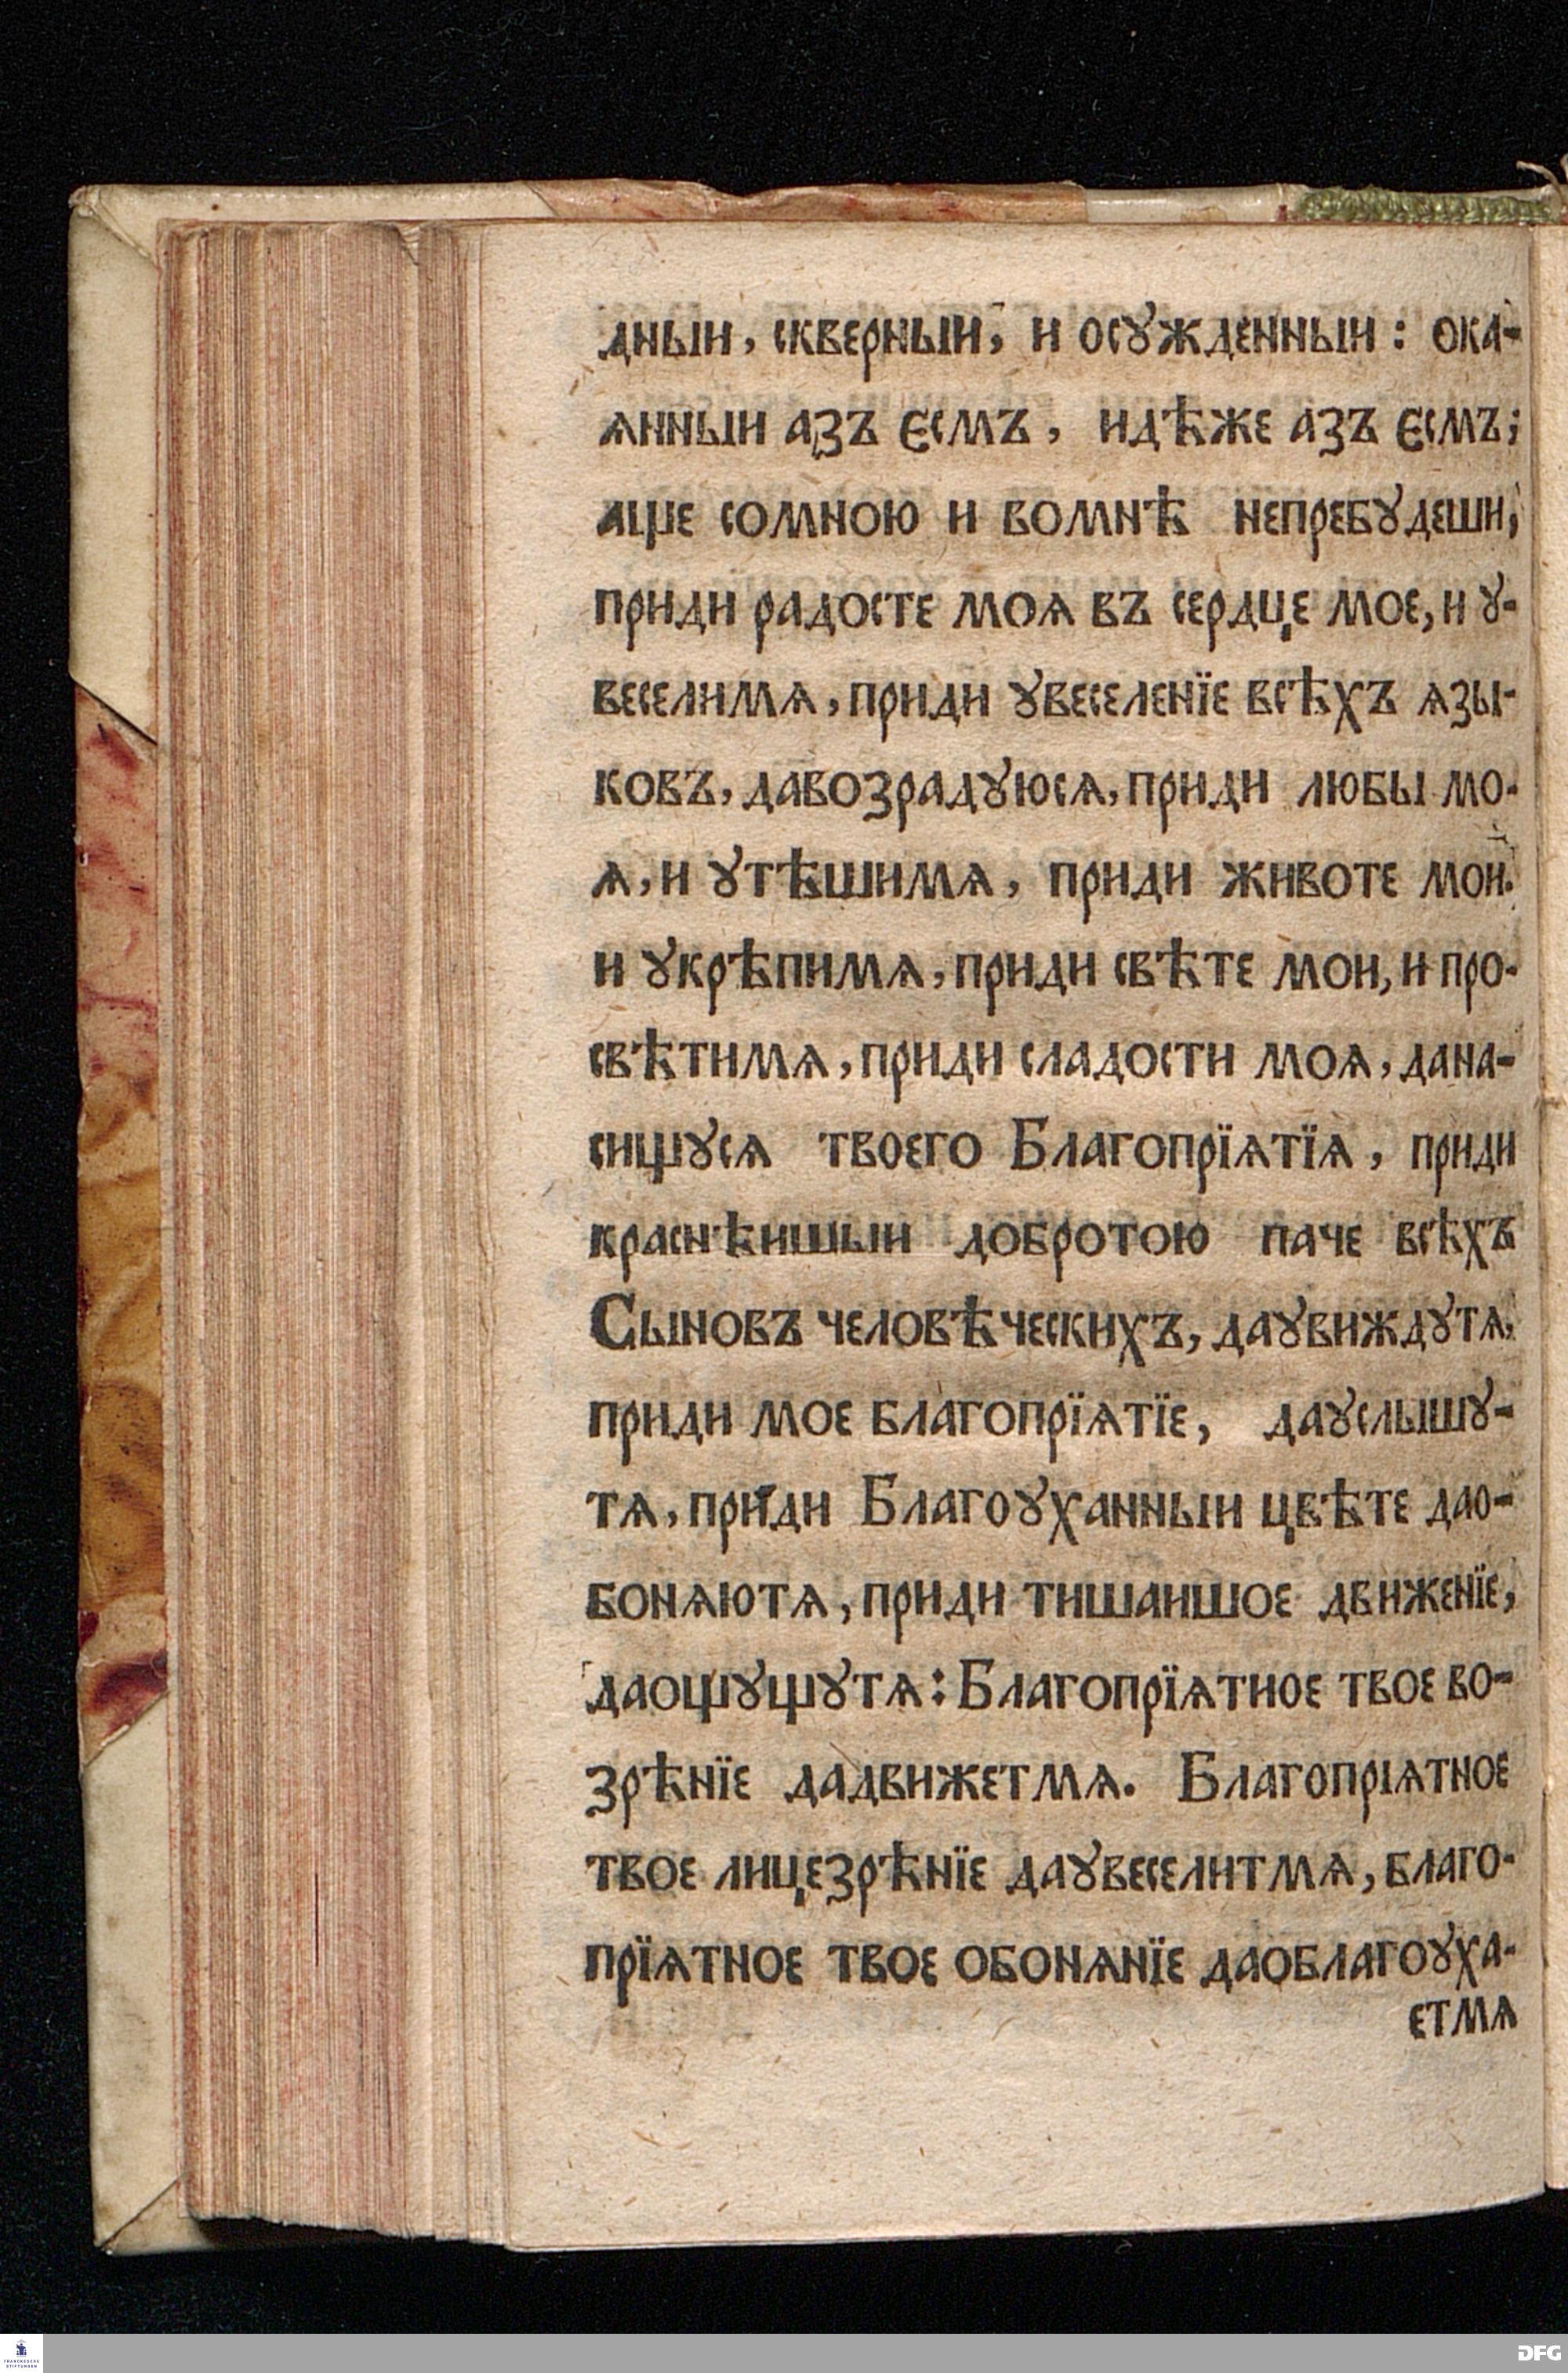 дныи, скверныи, и осꙋжденныи: ока-
ѧнныи азъ єсмъ, идѣже азъ єсмъ;
аще сомною и вомнѣ непребꙋдеши,
приди радосте моѧ въ сердце мое, и ꙋ-
веселимѧ, приди ꙋвеселенїе всѣхъ ѧзы-
ковъ, давозрадꙋюсѧ, приди любы мо-
ѧ, и ꙋтѣшимѧ, приди животе мои.
и ꙋкрѣпимѧ, приди свѣте мои, и про-
свѣтимѧ, приди сладости моѧ, дана-
сищꙋсѧ твоего Благопрїѧтїѧ, приди
краснѣишыи добротою паче всѣхъ
Сыновъ человѣческихъ, даꙋвиждꙋтѧ,
приди мое благопрїѧтїе, даꙋслышꙋ-
тѧ, приди Благоꙋханныи цвѣте дао-
бонѧютѧ, приди тишаишое движенїе,
даощꙋщꙋтѧ: Благопрїѧтное твое во-
зрѣнїе дадвижетмѧ. Благопріѧтное
твое лицезрѣнїе даꙋвеселитмѧ, благо-
прїѧтное твое обонѧнїе даоблагоꙋха-
етмѧ
FRANCKESCHE
STIFTUNGEN
DFG